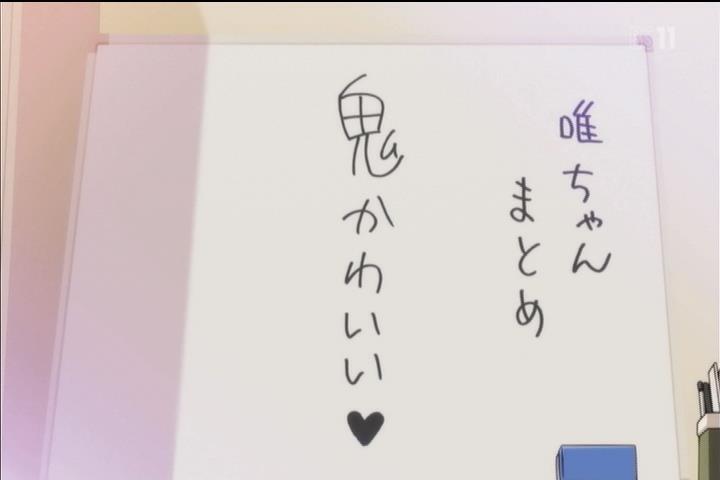 唯ちゃん
まとめ
鬼かわいい♥
11